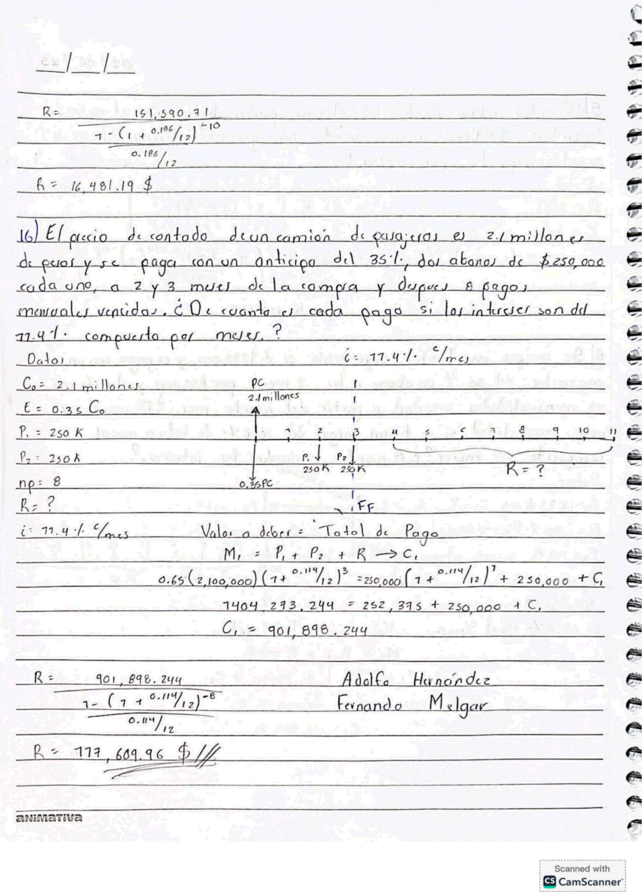 __/__/__
R= 151,590.71
1-(1+0.186/12)^-10
0.186/12
R= 16,481.19 $
16) El precio de contado de un camión de pasajeros es 2.1 millones
de pesos y se paga con un anticipo del 35%, dos abonos de $250,000
cada uno, a 2 y 3 meses de la compra y despues 8 pagos
mensuales vencidos. ¿De cuanto es cada pago si los intereses son del
11.4% compuesto por meses.?
Datos i= 11.4% c/mes
C₀= 2.1 millones PC
2.1 millones
E= 0.35 C₀
P₁= 250 K 1 2 3 4 5 6 7 8 9 10 11
P₂= 250K P₁ P₂ R= ?
250K 250K
np= 8 0.35PC
R= ? FF
i= 11.4% c/mes Valor a deber = Total de Pago
M₁ = P₁ + P₂ + R → C₁
0.65(2,100,000)(1+0.114/12)^3 =250,000(1+0.114/12)^1 + 250,000 + C₁
1404,273.244 = 252,375 + 250,000 + C₁
C₁ = 901,898.244
R= 901,898.244 Adolfo Hernández
1-(1+0.114/12)^-8 Fernando Melgar
0.114/12
R= 117,609.96 $//
ANIMATIVA
Scanned with
CS CamScanner